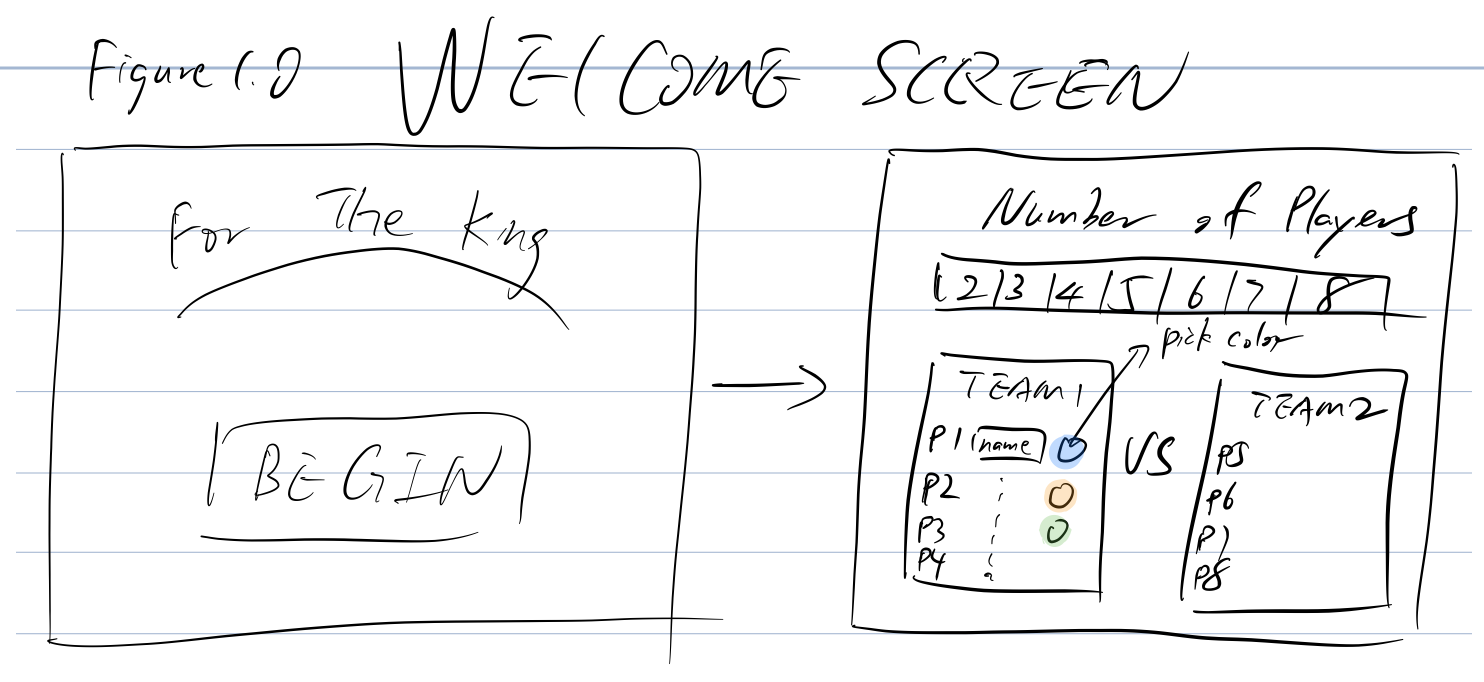 Figure 1.0 WELCOME SCREEN
For The King
BEGIN
Number of Players
2 3 4 5 6 7 8
pick color
TEAM1
P1 name
P2
P3
P4
VS
TEAM2
P5
P6
P7
P8